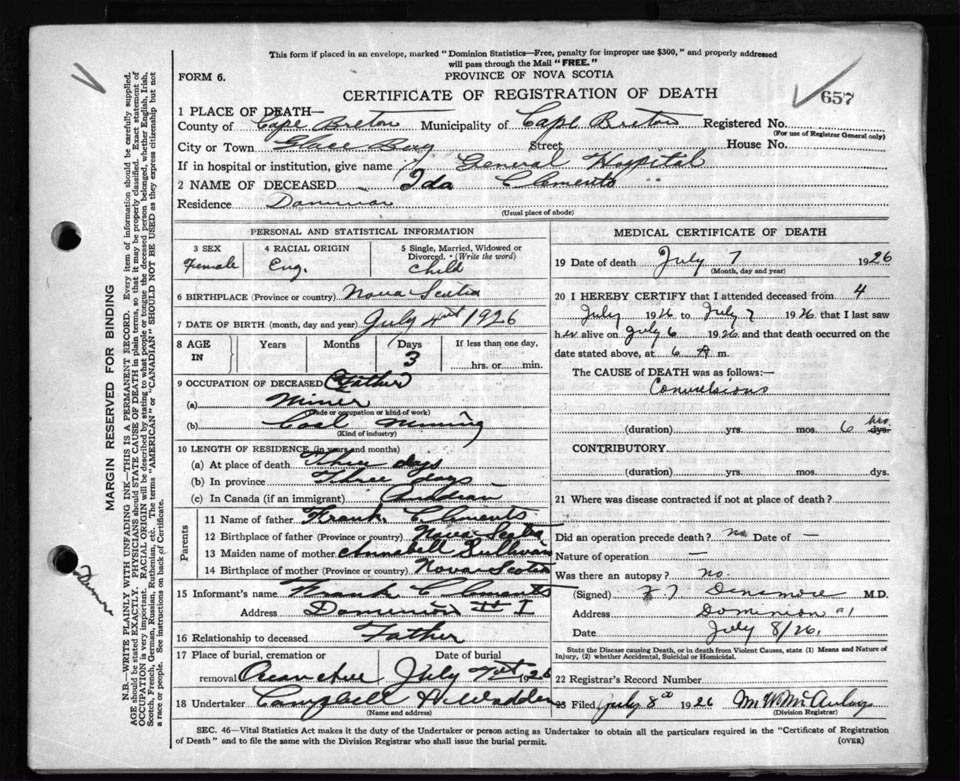 This form if placed in an envelope, marked "Dominion Statistics—Free, penalty for improper use $300," and properly addressed
will pass through the Mail "FREE."
FORM 6.
PROVINCE OF NOVA SCOTIA
CERTIFICATE OF REGISTRATION OF DEATH
657
1 PLACE OF DEATH—
County of Cape Breton Municipality of Cape Breton Registered No.
(For use of Registrar General only)
City or Town Glace Bay Street House No.
If in hospital or institution, give name General Hospital
2 NAME OF DECEASED Ida Clements
Residence Dominion
(Usual place of abode)
PERSONAL AND STATISTICAL INFORMATION
3 SEX 4 RACIAL ORIGIN 5 Single, Married, Widowed or
Divorced. (Write the word)
Female Eng. Child
6 BIRTHPLACE (Province or country) Nova Scotia
7 DATE OF BIRTH (month, day and year) July 4 1926
8 AGE IN Years Months Days If less than one day,
3 hrs. or min.
9 OCCUPATION OF DECEASED (Father
(a) Miner
(Trade or occupation or kind of work)
(b) Coal Mining
(Kind of industry)
10 LENGTH OF RESIDENCE (in years and months)
(a) At place of death Three dys
(b) In province Three days
(c) In Canada (if an immigrant)
Parents
11 Name of father Frank Clements
12 Birthplace of father (Province or country) Nova Scotia
13 Maiden name of mother Annabell Sullivan
14 Birthplace of mother (Province or country) Nova Scotia
15 Informant's name Frank Clements
Address Dominion # 1
16 Relationship to deceased Father
17 Place of burial, cremation or Date of burial
removal July 1926
18 Undertaker Campbell
(Name and address)
MEDICAL CERTIFICATE OF DEATH
19 Date of death July 7 1926
(Month, day and year)
20 I HEREBY CERTIFY that I attended deceased from 4
July 1926 to July 7 1926, that I last saw
her alive on July 6 1926 and that death occurred on the
date stated above, at 6 A m.
The CAUSE of DEATH was as follows:—
Convulsions
(duration) yrs. mos. 6 hrs. dys.
CONTRIBUTORY
(duration) yrs. mos. dys.
21 Where was disease contracted if not at place of death?
Did an operation precede death? no Date of —
Nature of operation —
Was there an autopsy? no.
(Signed) Densmore M.D.
Address Dominion #1
Date July 8/26.
State the Disease causing Death, or in death from Violent Causes, state (1) Means and Nature of
Injury, (2) whether Accidental, Suicidal or Homicidal.
22 Registrar's Record Number
23 Filed July 8 1926
(Division Registrar)
SEC. 46—Vital Statistics Act makes it the duty of the Undertaker or person acting as Undertaker to obtain all the particulars required in the "Certificate of Registration
of Death" and to file the same with the Division Registrar who shall issue the burial permit. (OVER)
MARGIN RESERVED FOR BINDING
N.B.—WRITE PLAINLY WITH UNFADING INK—THIS IS A PERMANENT RECORD. Every item of information should be carefully supplied.
AGE should be stated EXACTLY. PHYSICIANS should STATE CAUSE OF DEATH in plain terms, so that it may be properly classified. Exact statement of
OCCUPATION is very important. RACIAL ORIGIN will be described by stating to what people or tongue the deceased person belonged, whether English, Irish,
Scotch, French, German, Russian, Ruthenian, etc. The terms "AMERICAN" or "CANADIAN" SHOULD NOT BE USED as they express citizenship but not
a race or people. See instructions on back of Certificate.